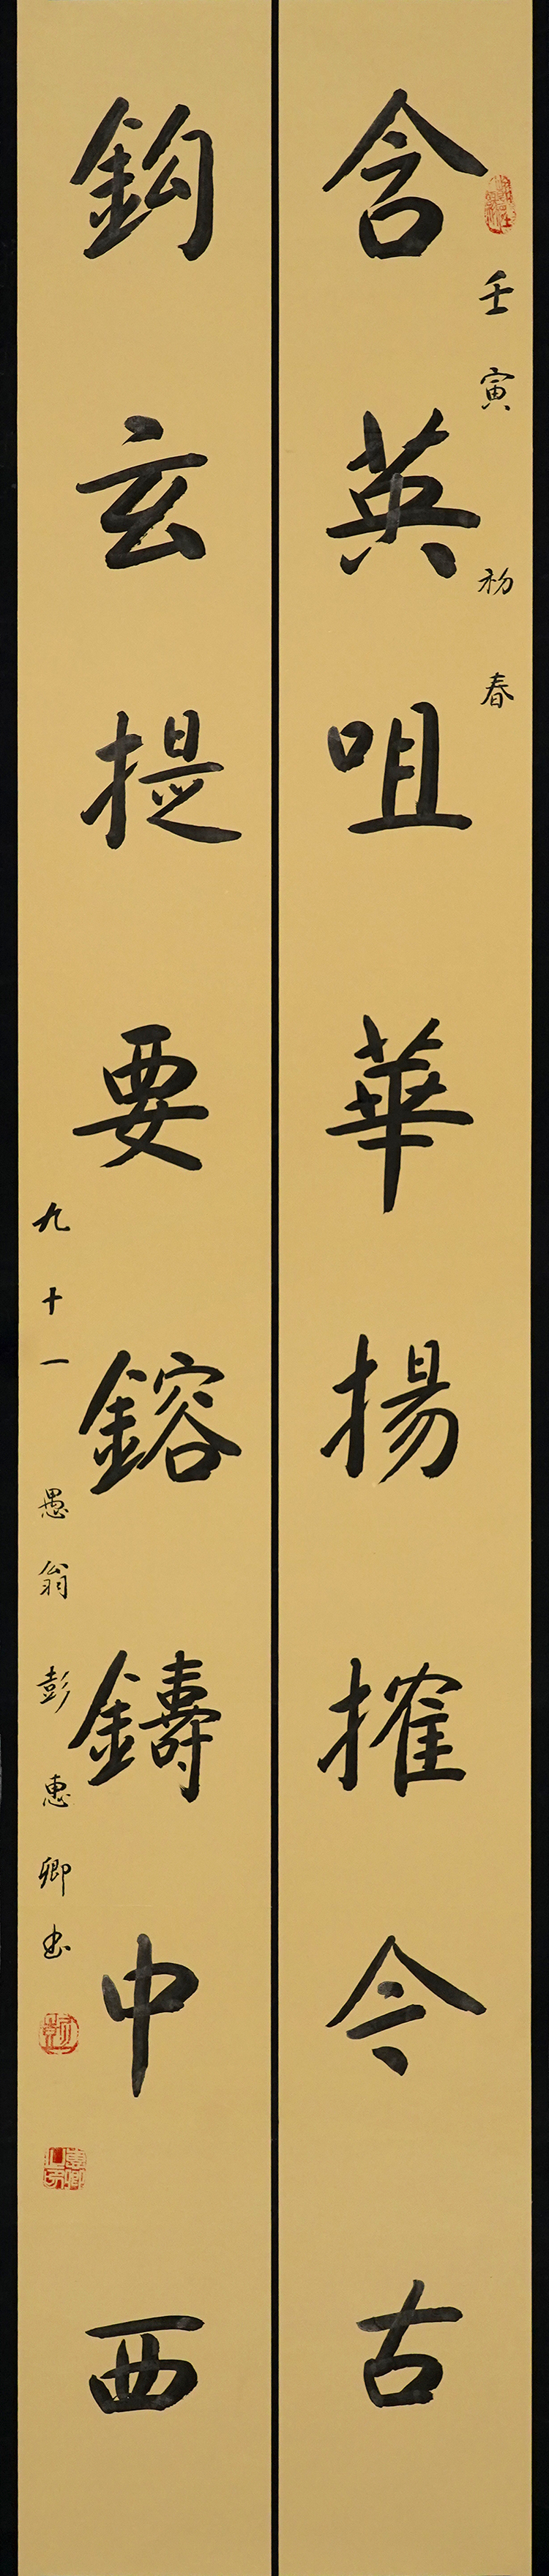 壬寅初春
含英咀華揚搉今古
鈎玄提要鎔鑄中西
九十一愚翁彭惠卿书